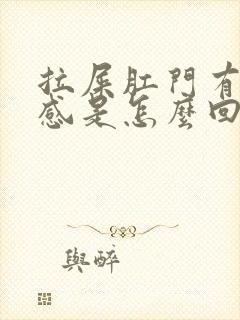 拉屎肛門有
感是怎麼回
與醉